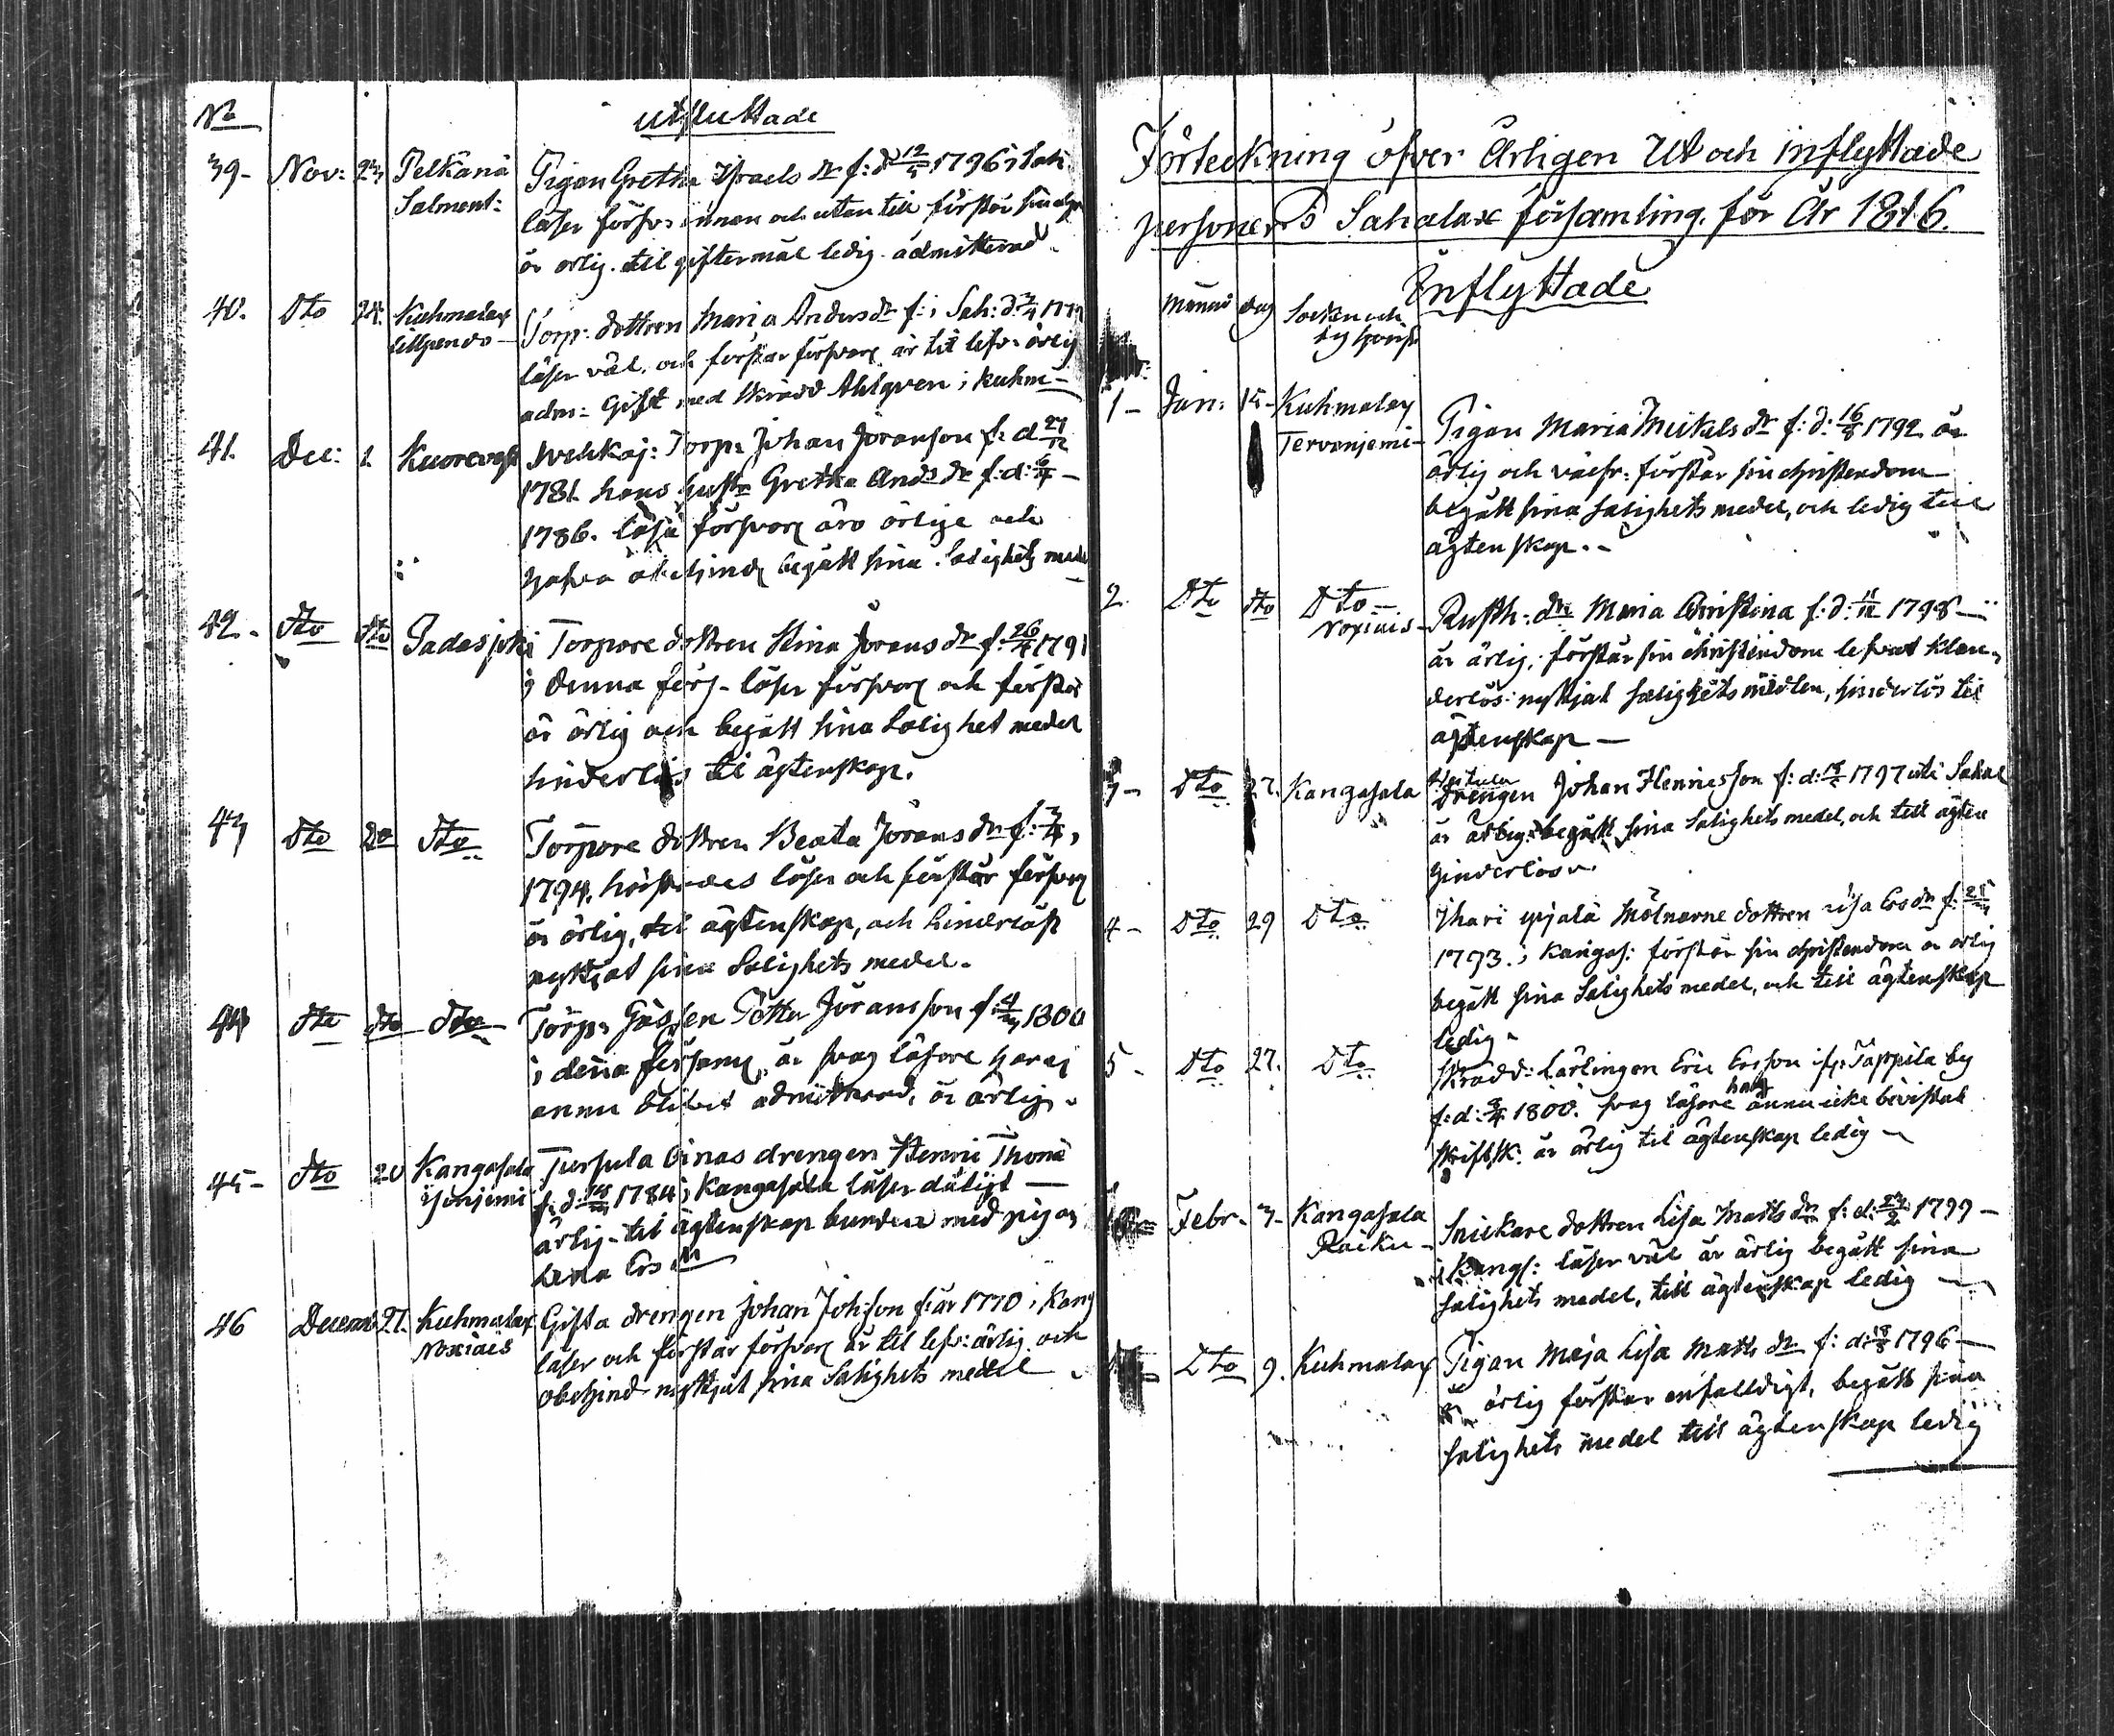 No Utfluttade
39- Nov: 23 Pelkänä Pigan Gretha Israels dr f: d 12/4 1796 i Sah.
Salment: läser försv: innan och utan till förstår sin
är ärlig. till giftermål ledig. admitterad
40. Dto 24. Kuhmalax Torp: dottren Maria Anders dr f: i Sah: d: 3/4
läser väl. och förstår försvarl är til lefv: ärlig
adm: Gift med Skrädd Ahlqven i Kuhm-
41. Dec: 1. Kuorevesi Torp: Johan Joranson f: d 27/12
1781 hans hustr Gretha And: dr f: d: 6/4 -
1786. läsa försvarl äro ärlige och
hafva begått sina Salighets medel
42. Dto Dto Padasjoki Torpare dottren Stina Jorans dr f: 26/4 1791
i denna förs- läser försvarl och förstår
är ärlig och begått sina Salighet medel
hinderlös til ägtenskap.
43 Dto Do Dto Torpare dottren Beata Jörans dr f: 3/4
1794. läser och förstår försvarl
är ärlig, til ägtenskap, och hinderlös
nyttjat sina Salighets medel.
44 Dto Dto Dto Torp: Gossen Petter Joransson f: 4/3 1800
i denna är svag läsare har ej
ännu blifvit admitterad, är ärlig.
45- Dto 20 Kangasala Tursula drengen Henric Thoma
f: d: 1784 i Kangasala läser dåligt -
ärlig- til ägtenskap bunden med pigan
Lena Ers dr
46 Decemb 27. Kuhmalax Gifta drengen Johan Joh:son f: år 1770 i Kang
läser och förstår försvarl är til lefv: ärlig och
obehind nyttjat sina Salighets medel
Förteckning öfver Årligen Ut och inflyttade
personer i Sahalax församling, för År 1816.
Inflyttade
Månad dag Socken och
by
1- Jan: 15- Kuhmalax Pigan Maria Mickels dr f: d: 16/8 1792 är
Tervaniemi- ärlig och förstår sin christendom
begått sina Salighets medel, och ledig till
ägtenskap.-
2. Dto Dto Dto- Rusth: dr Maria Christina f: d: 1798-
är ärlig, förstår sin christendom lefvat klan-
derlös nyttjat salighets midlen, hinderlös til
ägtenskap-
3- Dto 27. Kangasala Drengen Johan Henricsson f: d: 1797 uti Sahal
är ärlig begått sina Salighets medel, och till ägten
hinderlös
4- Dto 29 Dto Mölnarne dottren Lisa Ers dr f: 25/3
1793. i Kangas: förstår sin christendom är ärlig
begått sina Salighets medel, och till ägtenskap
ledig-
5- Dto 27. Dto Skrädd: Lärlingen Eric Ersson ifr: Tappila by
f: d: 1800. svag läsare har ännu icke bivistat
Skriftsk. är ärlig til ägtenskap ledig-
Febr. 3- Kangasala Snickare dottren Lisa Matts dr f: d: 23/2 1799-
i Kangs: läser väl är ärlig begått sina
salighets medel, till ägtenskap ledig-
Dto 9. Kuhmalax Pigan Maja Lisa Matts dr f: d: 18/8 1796-
är ärlig förstår enfalldigt, begått sina
salighets medel till ägtenskap ledig